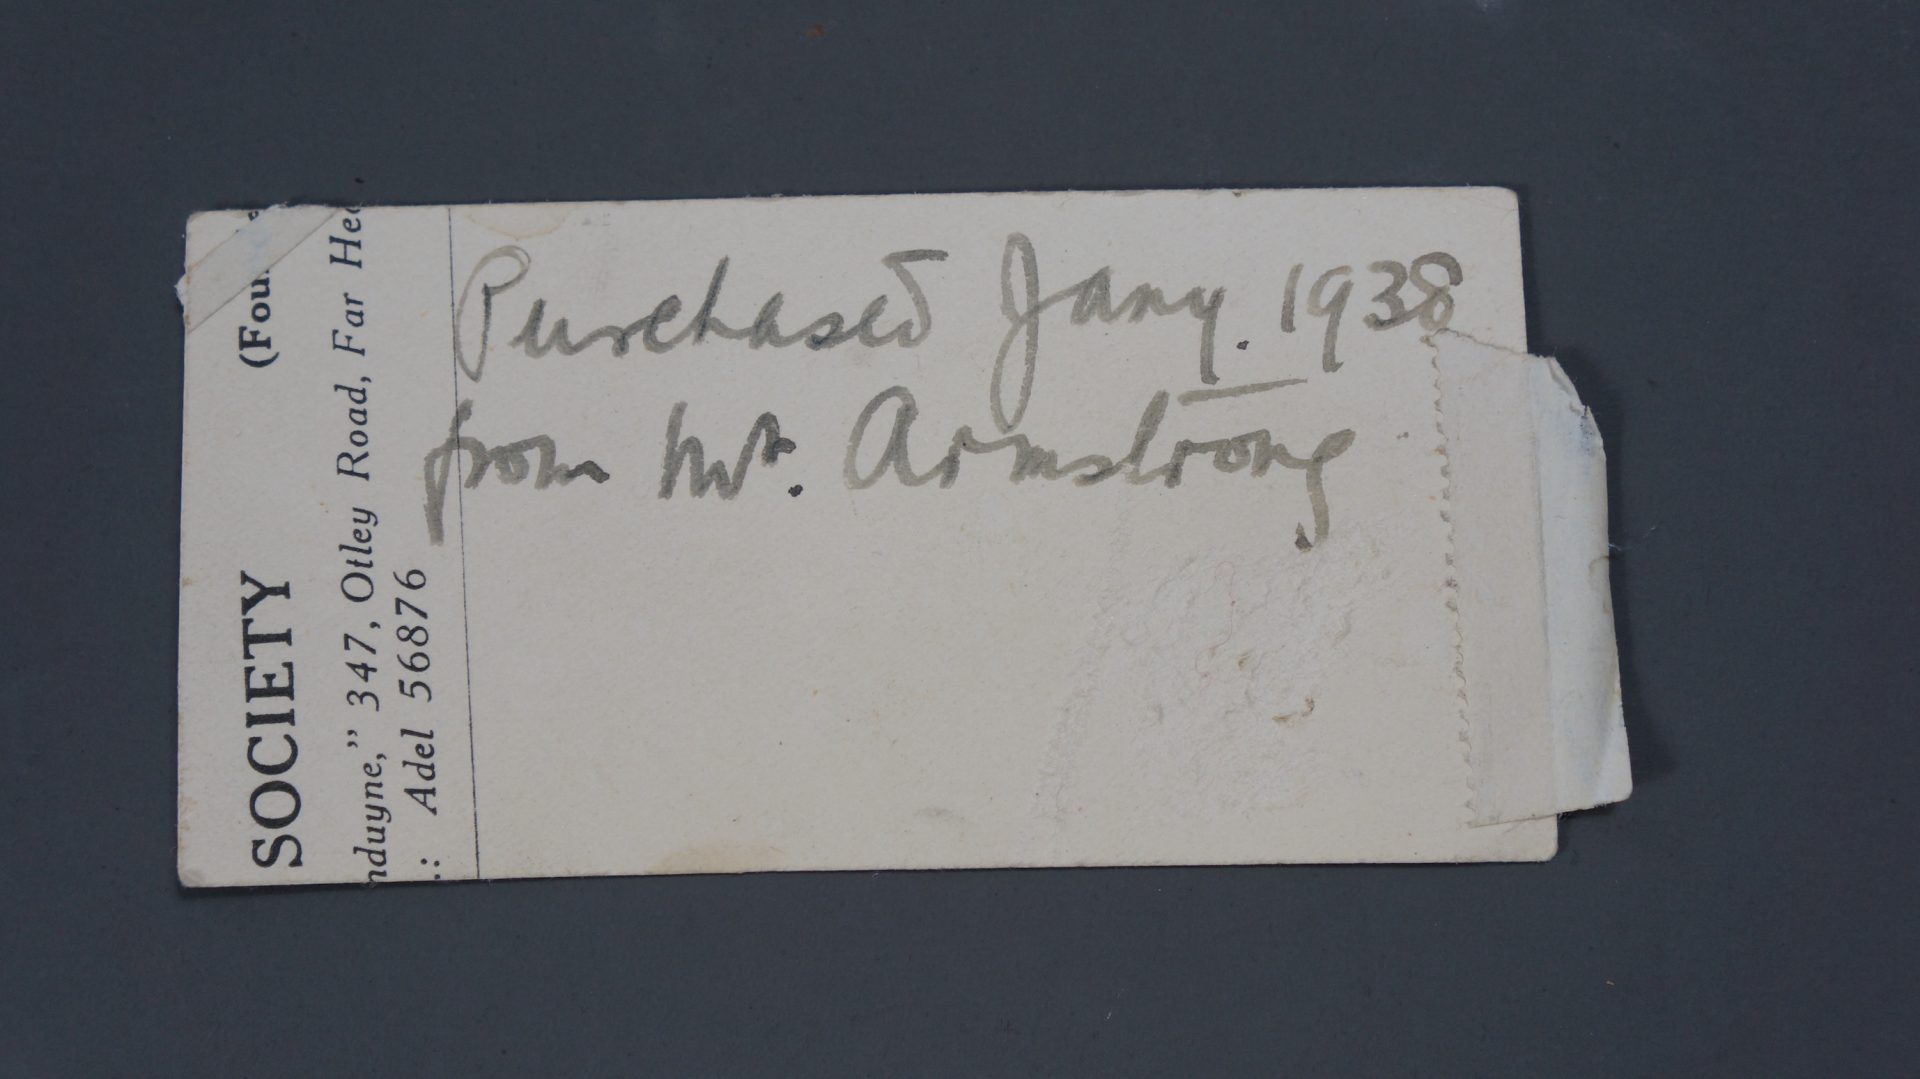 Purchased Jany. 1938
from Mr. Armstrong
SOCIETY (Fou
nduyne," 347, Otley Road, Far Hea
.: Adel 56876